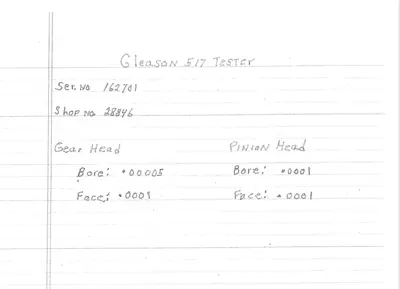 Gleason 517 Tester
Ser. No 162701
Shop No. 28846
Gear Head    Pinion Head
Bore: .00005    Bore: .0001
Face: .0001    Face: .0001